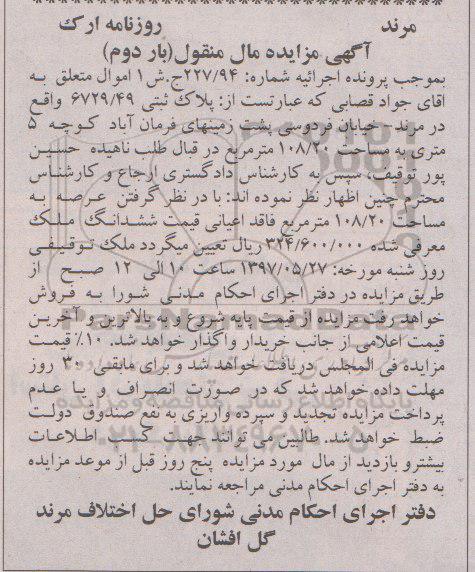 مرند روزنامه ارک
آگهی مزایده مال منقول(بار دوم)
بموجب پرونده اجرائیه شماره: ۲۲۷/۹۴ج.ش۱ اموال متعلق به
آقای جواد قصابی که عبارتست از: پلاک ثبتی ۶۷۲۹/۴۹ واقع
در مرند - خیابان فردوسی پشت زمینهای فرمان آباد کوچه ۵
متری به مساحت ۱۰۸/۲۰ مترمربع در قبال طلب ناهیده حسین
پور توقیف، سپس به کارشناس دادگستری ارجاع و کارشناس
محترم چنین اظهار نظر نموده اند: با در نظر گرفتن عرصه به
مساحت ۱۰۸/۲۰ مترمربع فاقد اعیانی قیمت ششدانگ ملک
معرفی شده ۳۲۴/۶۰۰/۰۰۰ ریال تعیین میگردد ملک توقیفی
روز شنبه مورخه: ۱۳۹۷/۰۵/۲۷ ساعت ۱۰ الی ۱۲ صبح از
طریق مزایده در دفتر اجرای احکام مدنی شورا به فروش
خواهد رفت مزایده از قیمت پایه شروع و به بالاترین و آخرین
قیمت اعلامی از جانب خریدار واگذار خواهد شد. ۱۰٪ قیمت
مزایده فی المجلس دریافت خواهد شد و برای مابقی ۳۰ روز
مهلت داده خواهد شد که در صورت انصراف و یا عدم
پرداخت مزایده تجدید و سپرده واریزی به نفع صندوق دولت
ضبط خواهد شد. طالبین می توانند جهت کسب اطلاعات
بیشترو بازدید از مال مورد مزایده پنج روز قبل از موعد مزایده
به دفتر اجرای احکام مدنی مراجعه نمایند.
دفتر اجرای احکام مدنی شورای حل اختلاف مرند
گل افشان
ParsNamadData
پایگاه اطلاع رسانی مناقصه و مزایده